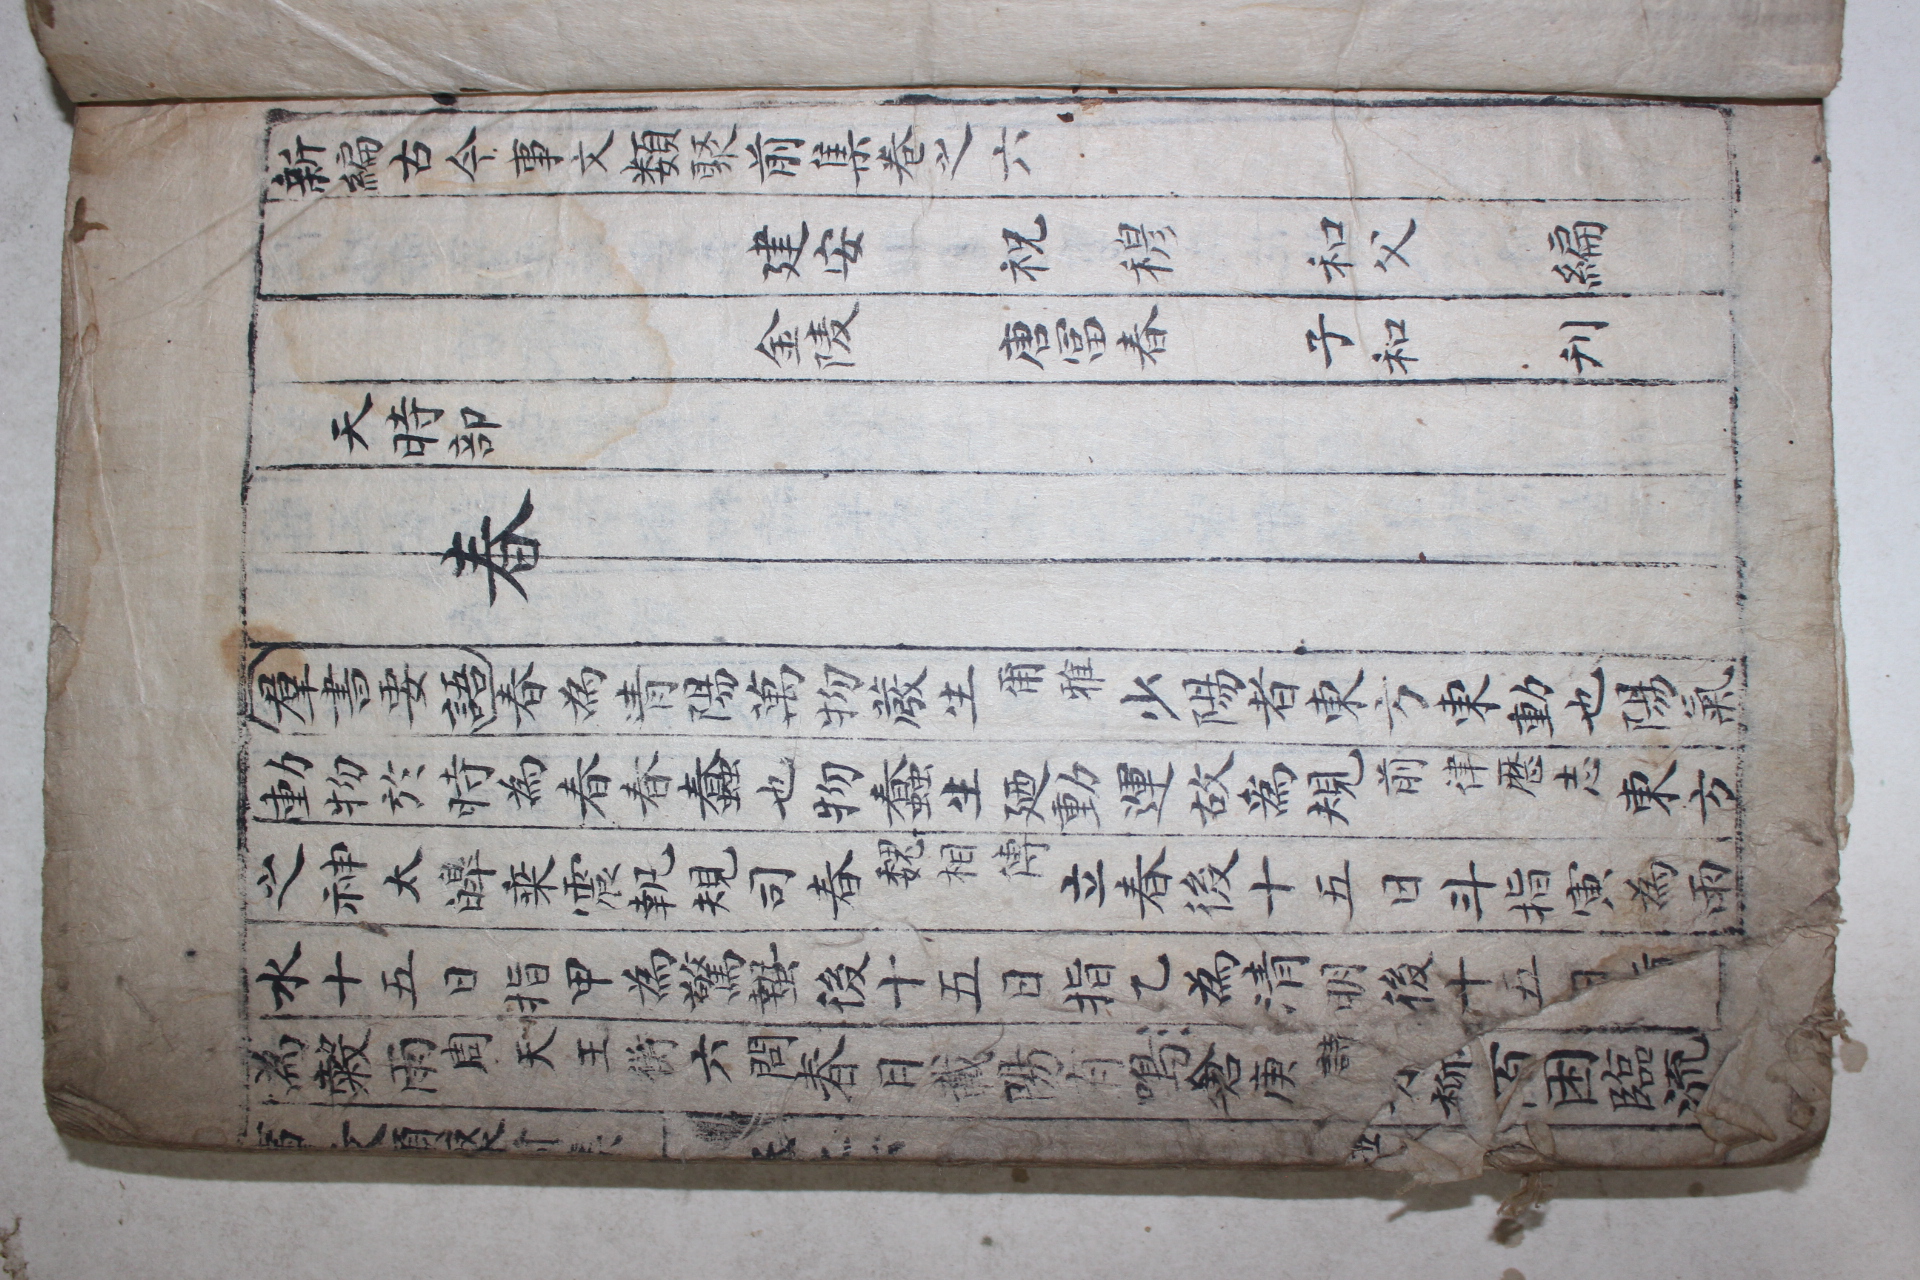 新編古今事文類聚前集卷之六
建安 祝 穆 和父 編
金陵 唐冨春 子和 刋
天時部
春
羣書要語春為清陽萬物蕟生爾雅少陽者東方東動也陽氣
動物於時為春春蠢也物蠢生廼動運故為規前律歷志東方
之神太皥乗震執規司春魏相傳立春後十五日斗指寅為雨
水十五日指甲為驚蟄後十五日指乙為清明後十五日指
為糓雨周天王衡六問春日載陽有鳴倉庚詩 柳 困臨流
事文類聚前集 卷之六